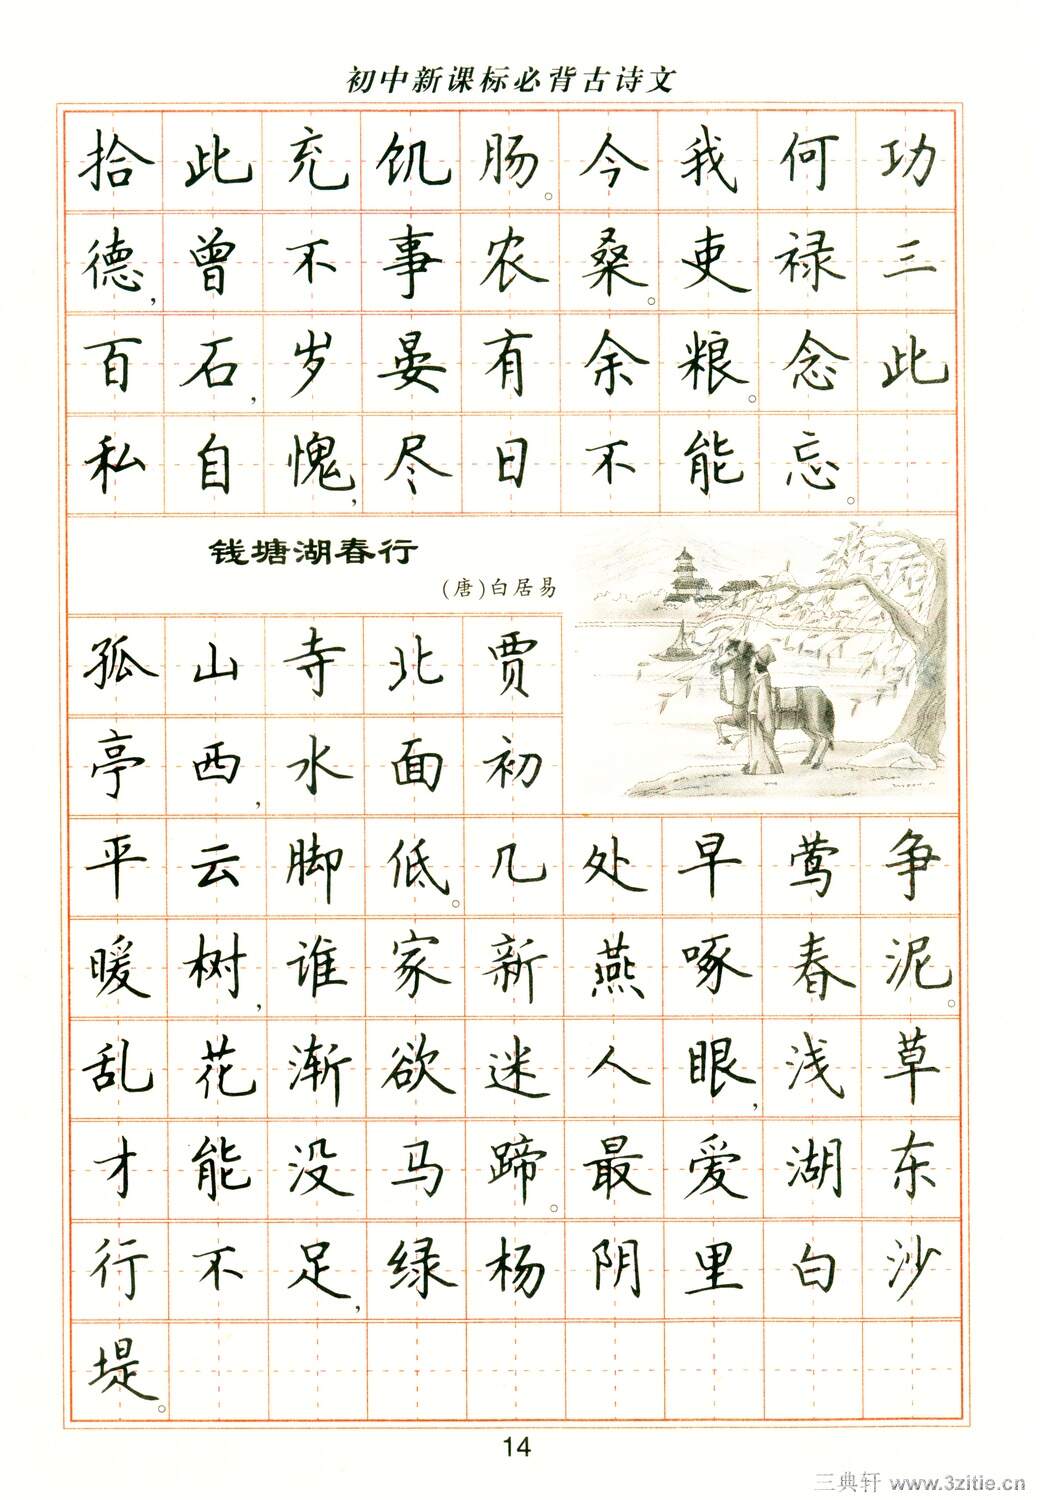 初中新课标必背古诗文
拾此充饥肠。今我何功
德,曾不事农桑。吏禄三
百石,岁晏有余粮。念此
私自愧,尽日不能忘。
钱塘湖春行
(唐)白居易
孤山寺北贾
亭西,水面初
平云脚低。几处早莺争
暖树,谁家新燕啄春泥。
乱花渐欲迷人眼,浅草
才能没马蹄。最爱湖东
行不足,绿杨阴里白沙
堤。
14
三典轩 www.3zitie.cn